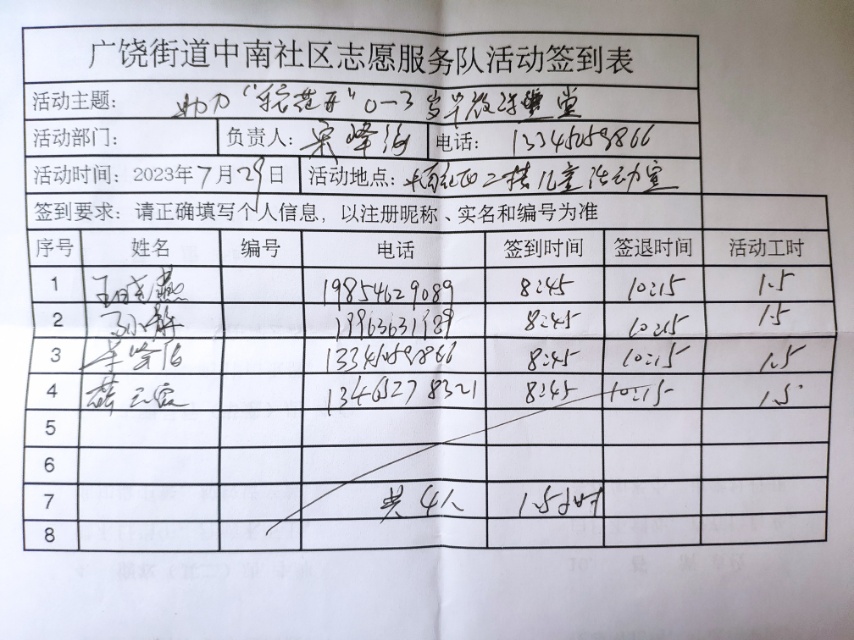 广饶街道中南社区志愿服务队活动签到表
活动主题: 助力"稳范开"0-3岁早教课堂
活动部门: 负责人: 电话: 13345059866
活动时间: 2023年7月29日 活动地点: 二楼儿童活动室
签到要求: 请正确填写个人信息, 以注册昵称、实名和编号为准
序号 姓名 编号 电话 签到时间 签退时间 活动工时
1 王晓燕 19854629089 8:45 10:15 1.5
2 孙静 8:45 10:15 1.5
3 13345059866 8:45 10:15 1.5
4 8:45 10:15 1.5
5
6
7 共4人 1.5小时
8